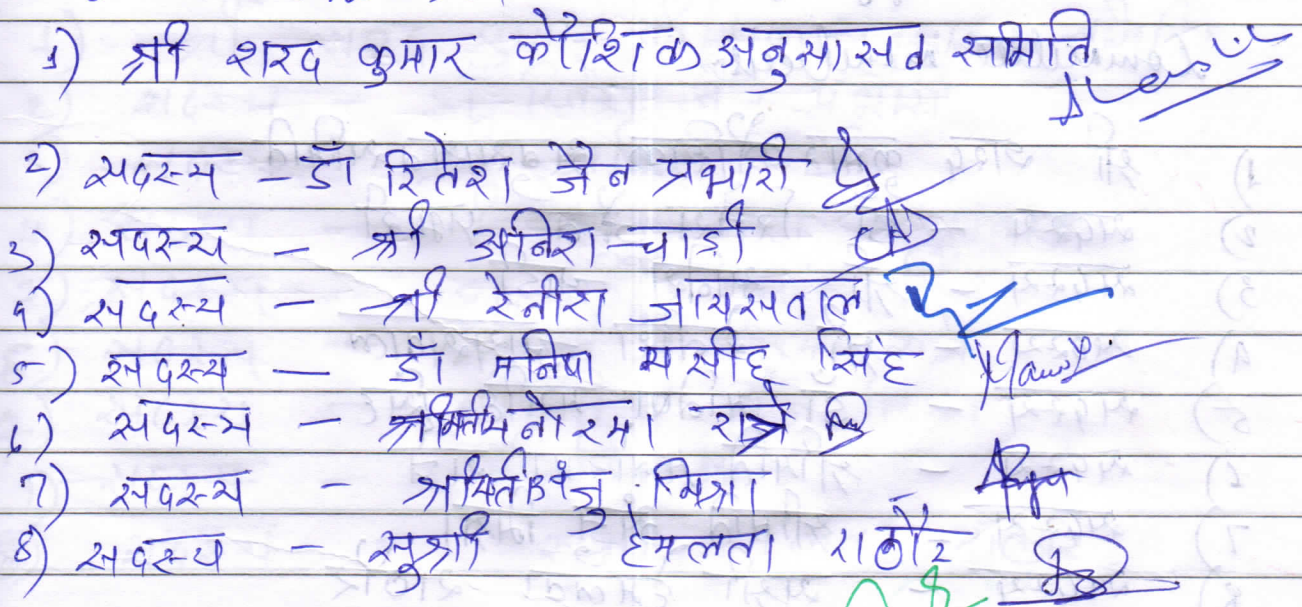 1) श्री शरद कुमार कौशिक अनुसासन समिति
2) सदस्य - डॉ रितेश जैन प्रभारी
3) सदस्य - श्री अनिश पाडी
4) सदस्य - श्री रेनीश जायसवाल
5) सदस्य - डॉ मनिषा मसीह सिंह
6) सदस्य - श्रीमती मनोरमा
7) सदस्य - श्रीमति मिश्रा
8) सदस्य - सुश्री हेमलता राठौर